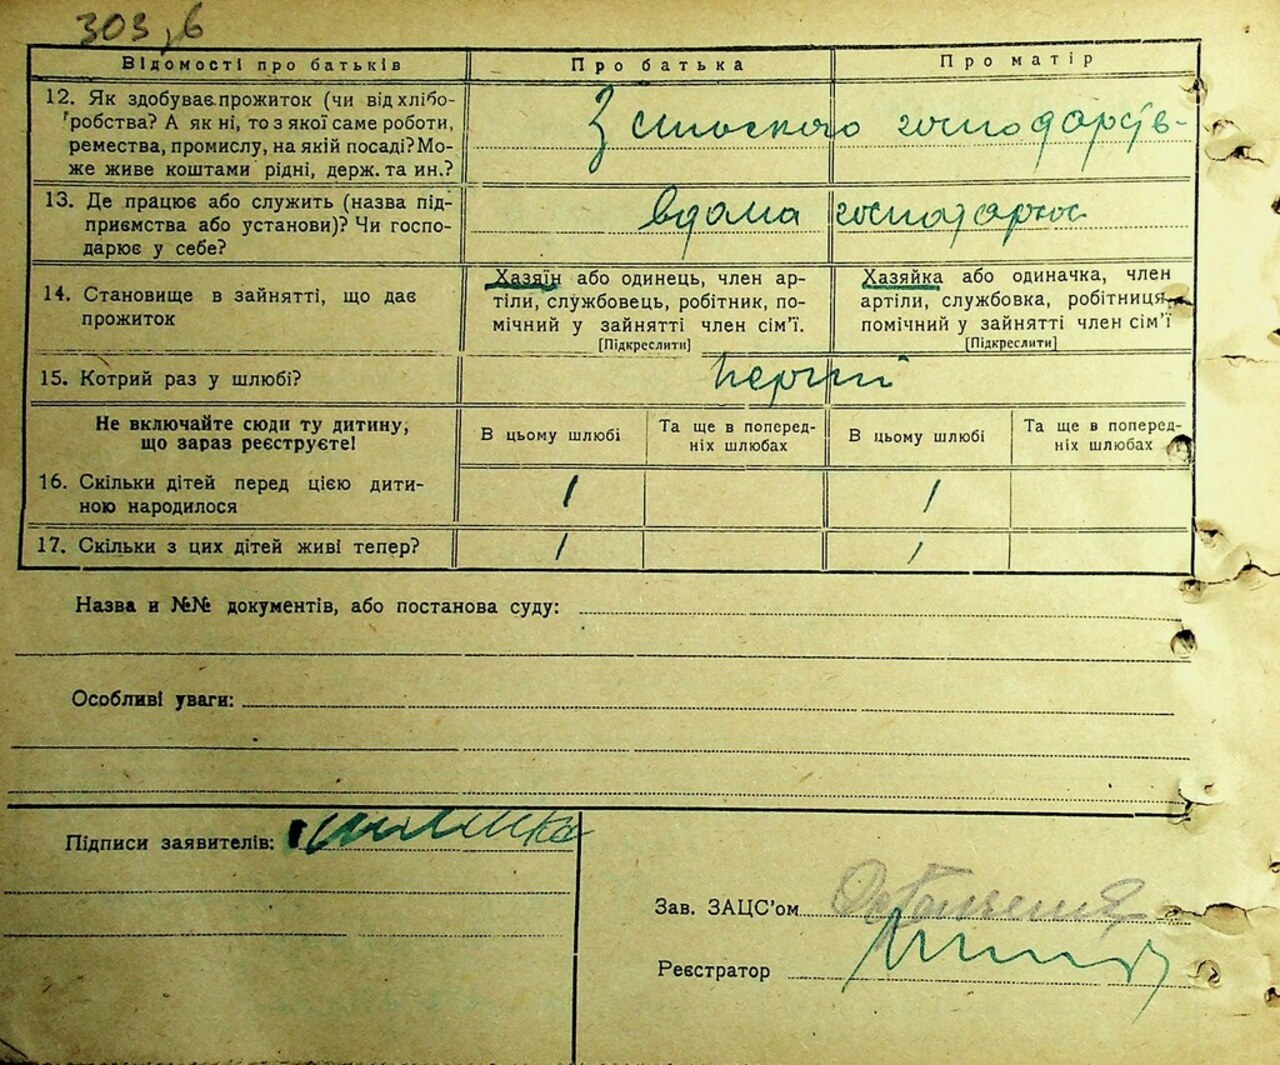 303,6
Відомості про батьків Про батька Про матір
12. Як здобуває прожиток (чи від хлібо-
робства? А як ні, то з якої саме роботи,
ремества, промислу, на якій посаді? Мо-
же живе коштами рідні, держ. та ин.?
З сільского господарств-
13. Де працює або служить (назва під-
приємства або установи)? Чи госпо-
дарює у себе?
вдома господарює
14. Становище в зайнятті, що дає
прожиток
Хазяїн або одинець, член ар-
тіли, службовець, робітник, по-
мічний у зайнятті член сім'ї.
[Підкреслити]
Хазяйка або одиначка, член
артіли, службовка, робітниця,
помічний у зайнятті член сім'ї
[Підкреслити]
15. Котрий раз у шлюбі? перший
Не включайте сюди ту дитину,
що зараз реєструєте!
В цьому шлюбі
Та ще в поперед-
ніх шлюбах
В цьому шлюбі
Та ще в поперед-
ніх шлюбах
16. Скільки дітей перед цією дити-
ною народилося
1 1
17. Скільки з цих дітей живі тепер? 1 1
Назва и №№ документів, або постанова суду:
Особливі уваги:
Підписи заявителів:
Зав. ЗАЦС'ом
Реєстратор